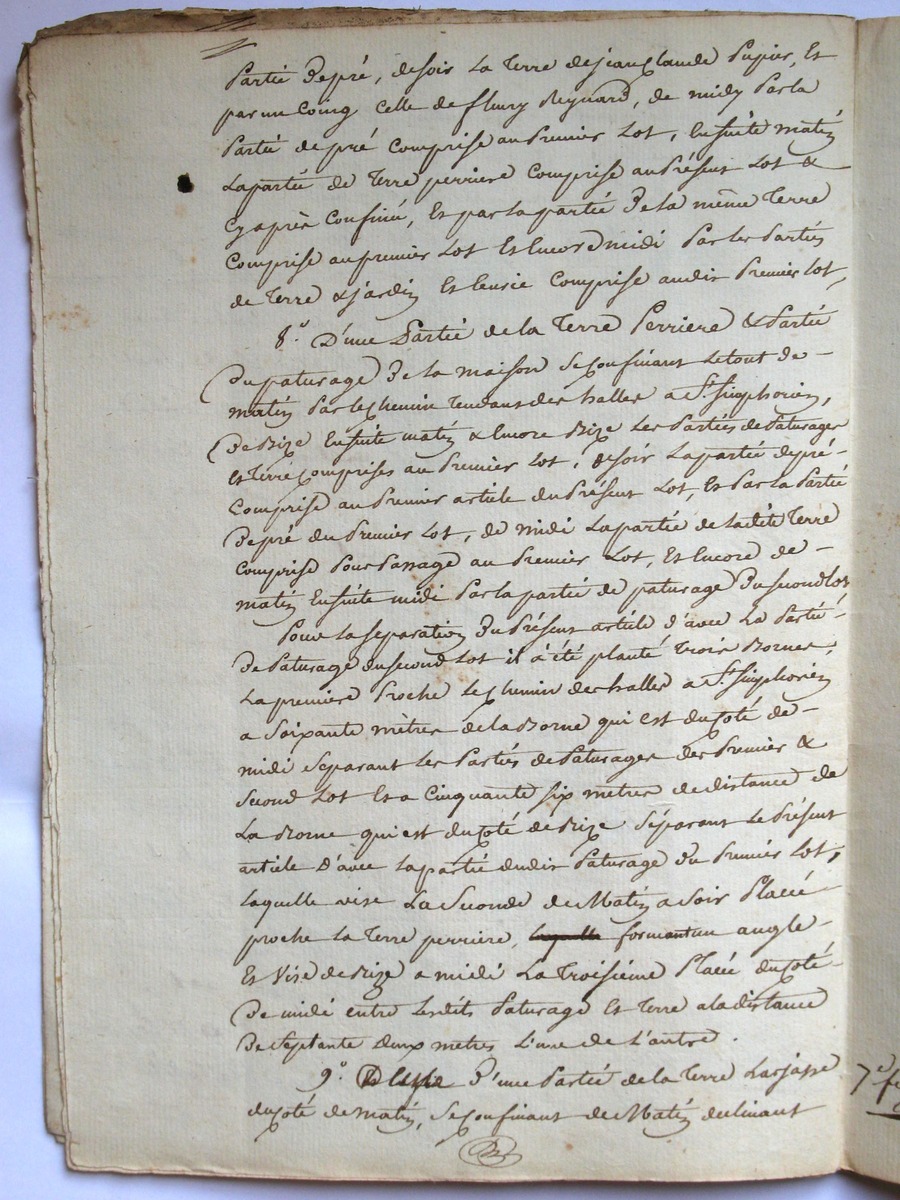 Partie De pré, de soir La Terre de jean Claude Pupier, Et
par un Coing celle de fleury Reynard, de midy Par la
Partie de pré Comprise au Premier Lot, Ensuite matin
La partie de Terre perriere Comprise au Présent Lot &
Cy après Confiné, Et par la partie De la même Terre
Comprise au premier Lot Et Encore midi Par les Parties
de Terre & jardin Et Comprise au dit Premier Lot,
8.° D'une Partie de la Terre Perriere & Partie
Du paturage De la maison Se Confinant Le tout de -
matin Par le Chemin Tendant des halles a St. Simphorien,
De Bize Ensuite matin & Encore Bize Les Parties de Paturages
Et Terre Comprises au Premier Lot, de soir La partie de pré -
Comprise au Premier article du Présent Lot, Et Par La Partie
De pré du Premier Lot, de midi La partie de la dite Terre
Comprise Pour Passage au Premier Lot, Et Encore de -
matin Ensuite midi Par la partie de paturage Du second Lot
Pour la Separation Du Présent article d'avec La Partie -
De Paturage du second Lot il a été planté Trois Bornes,
La premiere Proche Le Chemin des halles a St. Simphorien
a Soixante mètres de la Borne qui est du Coté de -
midi Separant Les Parties de Paturages des Premier &
Second Lot Et a Cinquante six metres de distance de
La Borne qui est du Coté de Bize Séparant Le Présent
article D'avec La partie du dit Paturage Du Premier Lot,
Laquelle vise La Seconde de Matin a Soir Placée
proche la Terre perriere, laquelle formant un angle -
Et Vise de Bize a midi La Troisième Placée du Coté -
De midi entre Les dits Paturage Et Terre a la distance
De Septante deux metres L'une de L'autre.
9.° D'une Partie de la Terre Lasjasse
du Coté de matin, Se Confinant de Matin declinant